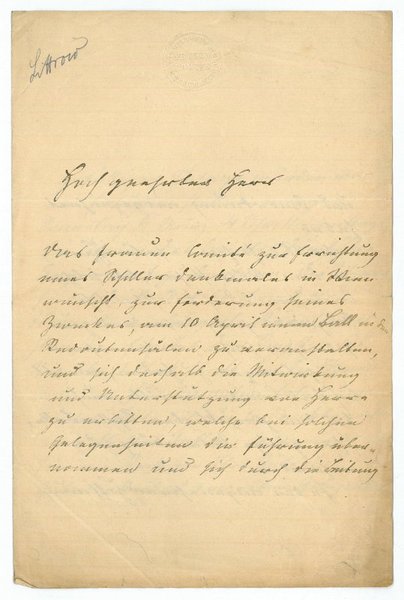 Littrow
Hoch geehrter Herr
Das Frauen Comité zur Errichtung
eines Schiller denkmales in Wien
wünscht, zur Förderung seines
Zweckes, am 10 April einen Ball in den
Redoutensälen zu veranstalten,
und sich deshalb die Mitwirkung
und Unterstützung von Herren
zu erbitten welche bei solchen
Gelegenheiten die Führung über-
nommen und sich durch die Leitung